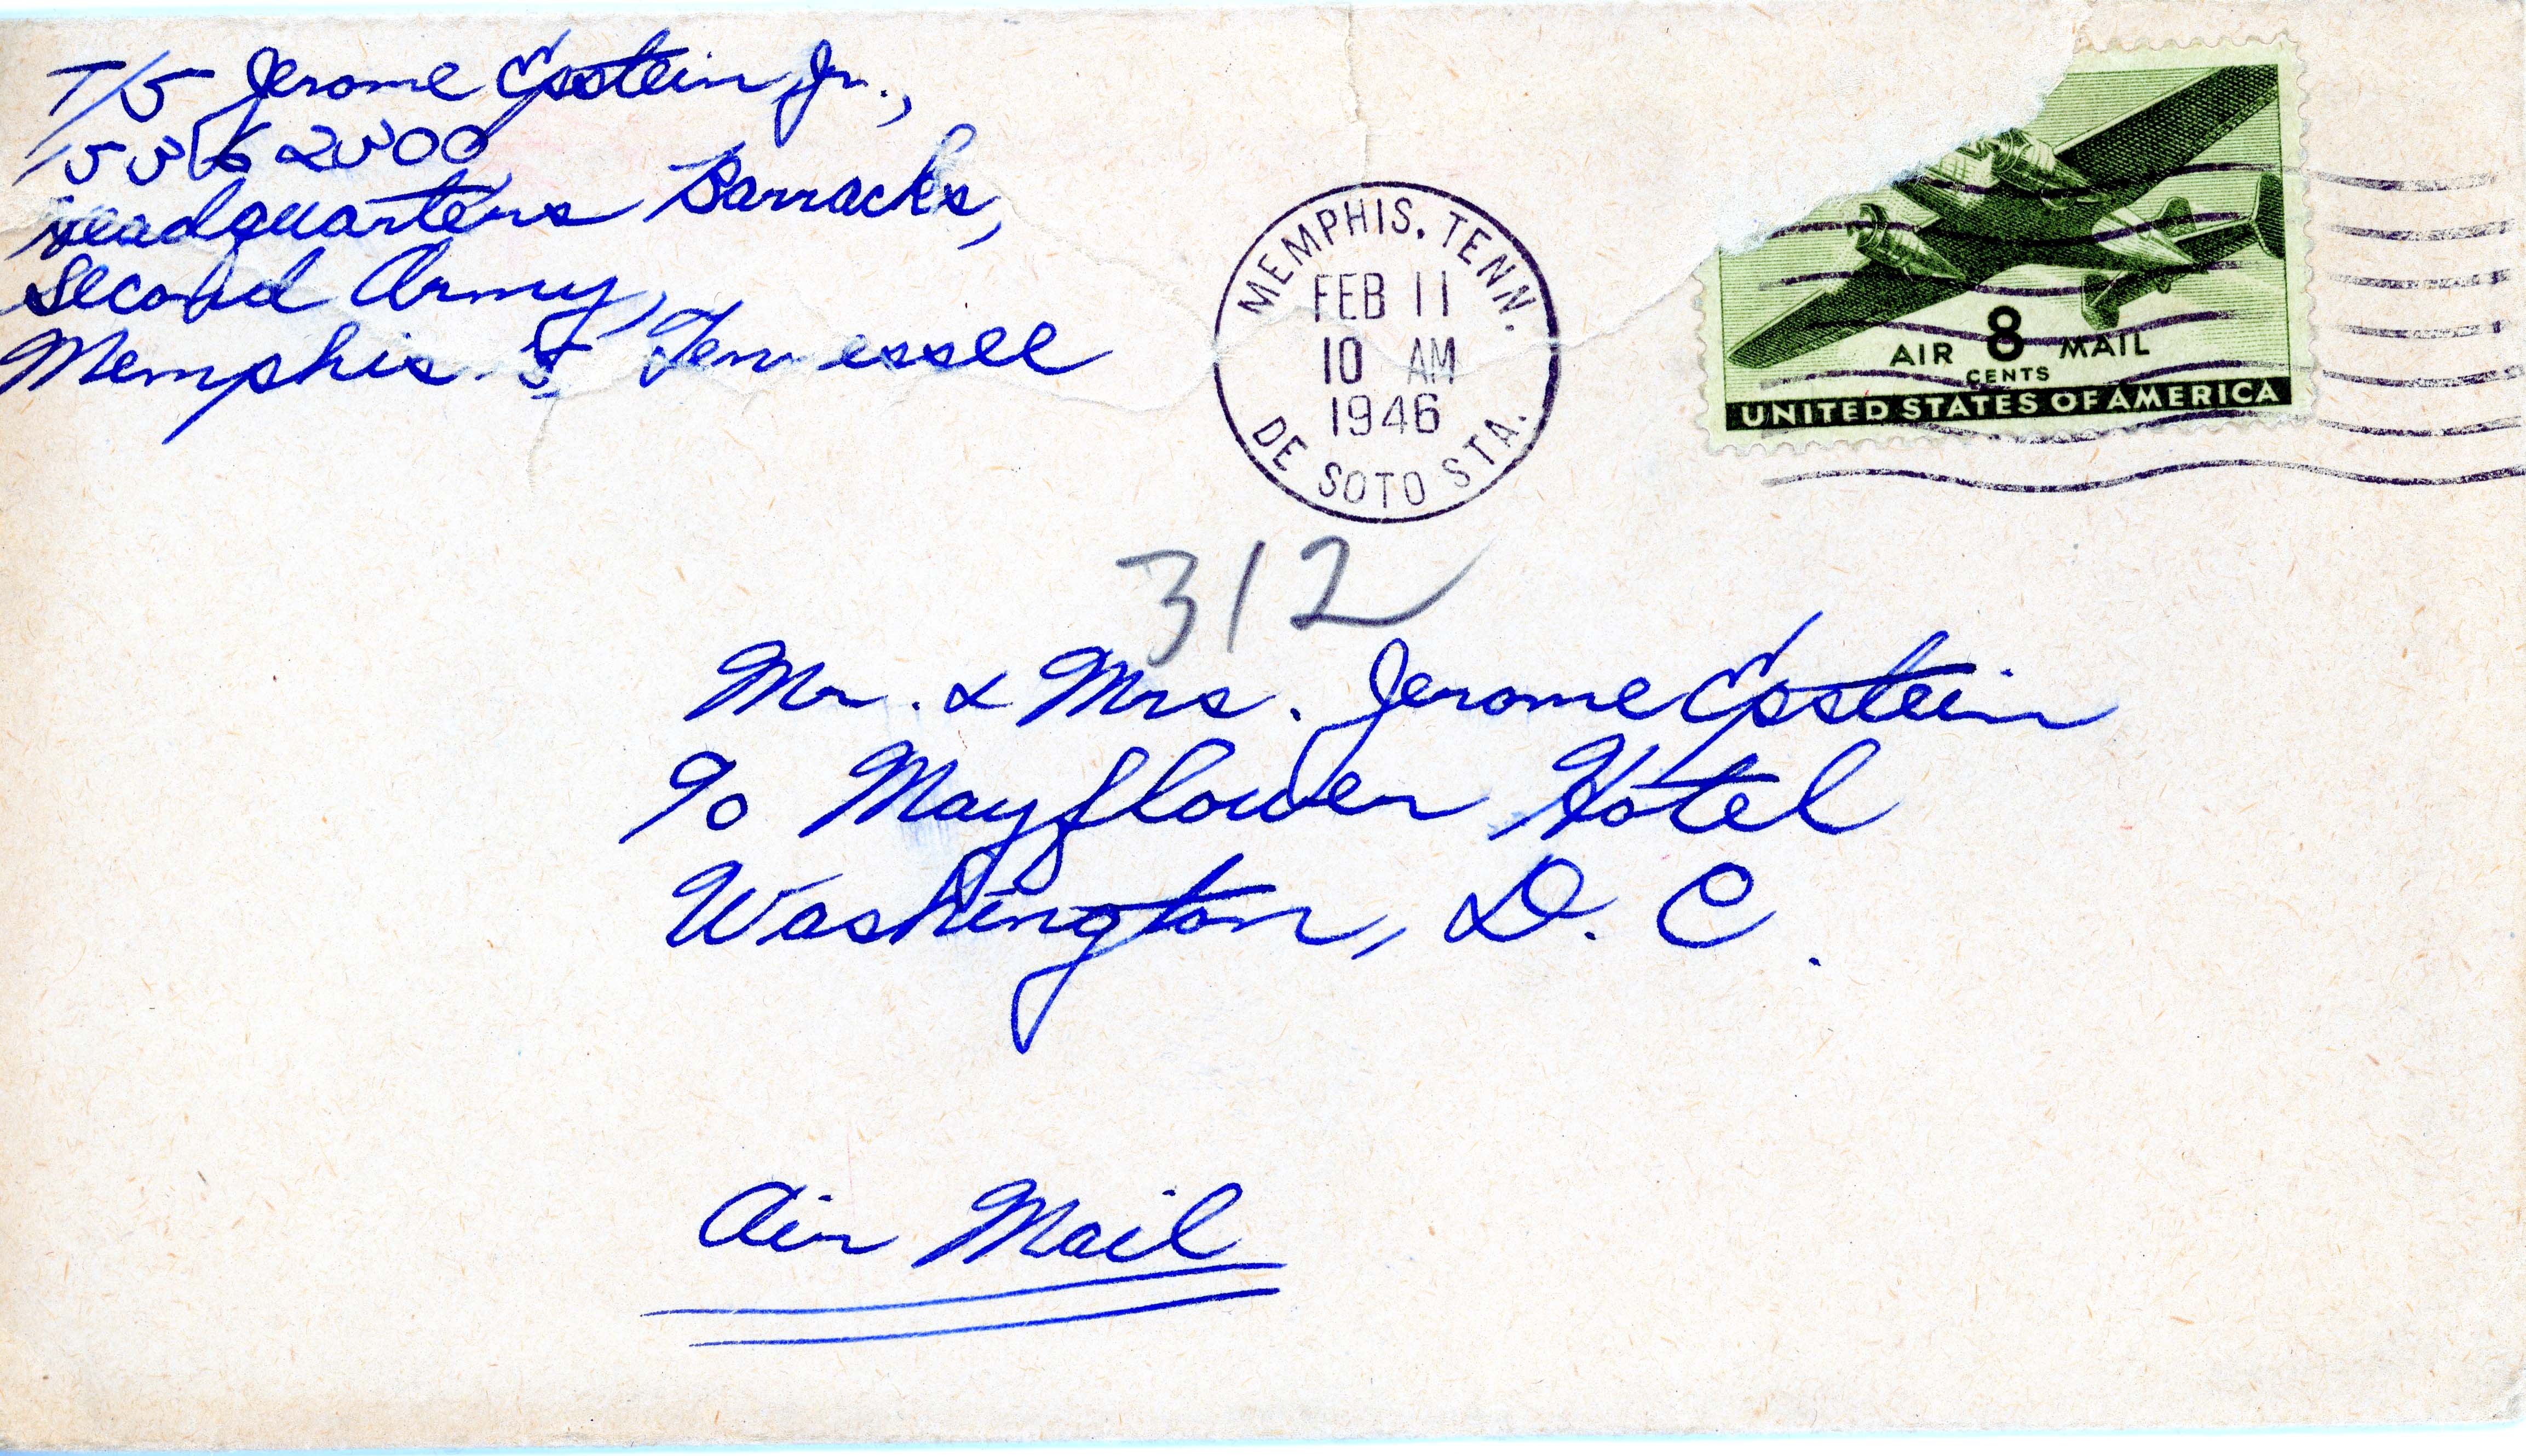 T/5 Jerome Epstein Jr.,
Headquarters Barracks,
Second Army,
Memphis 5, Tennessee
MEMPHIS, TENN.
FEB 11
10 AM
1946
DE SOTO STA.
AIR 8 MAIL
CENTS
UNITED STATES OF AMERICA
312
Mr. & Mrs. Jerome Epstein
c/o Mayflower Hotel
Washington, D. C.
Air Mail